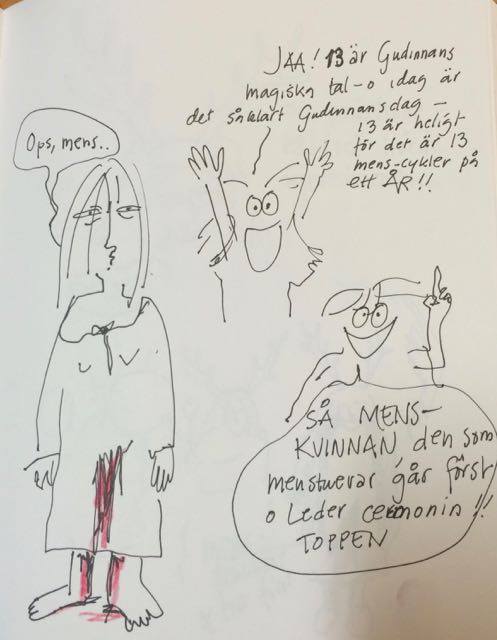 Ops, mens..
JAA! 13 är Gudinnans
magiska tal - o idag är
det såklart Gudinnansdag -
13 är heligt
för det är 13
mens-cykler på
ett ÅR!!
SÅ MENS-
KVINNAN, den som
menstruerar går först
o Leder ceremonin!!
TOPPEN